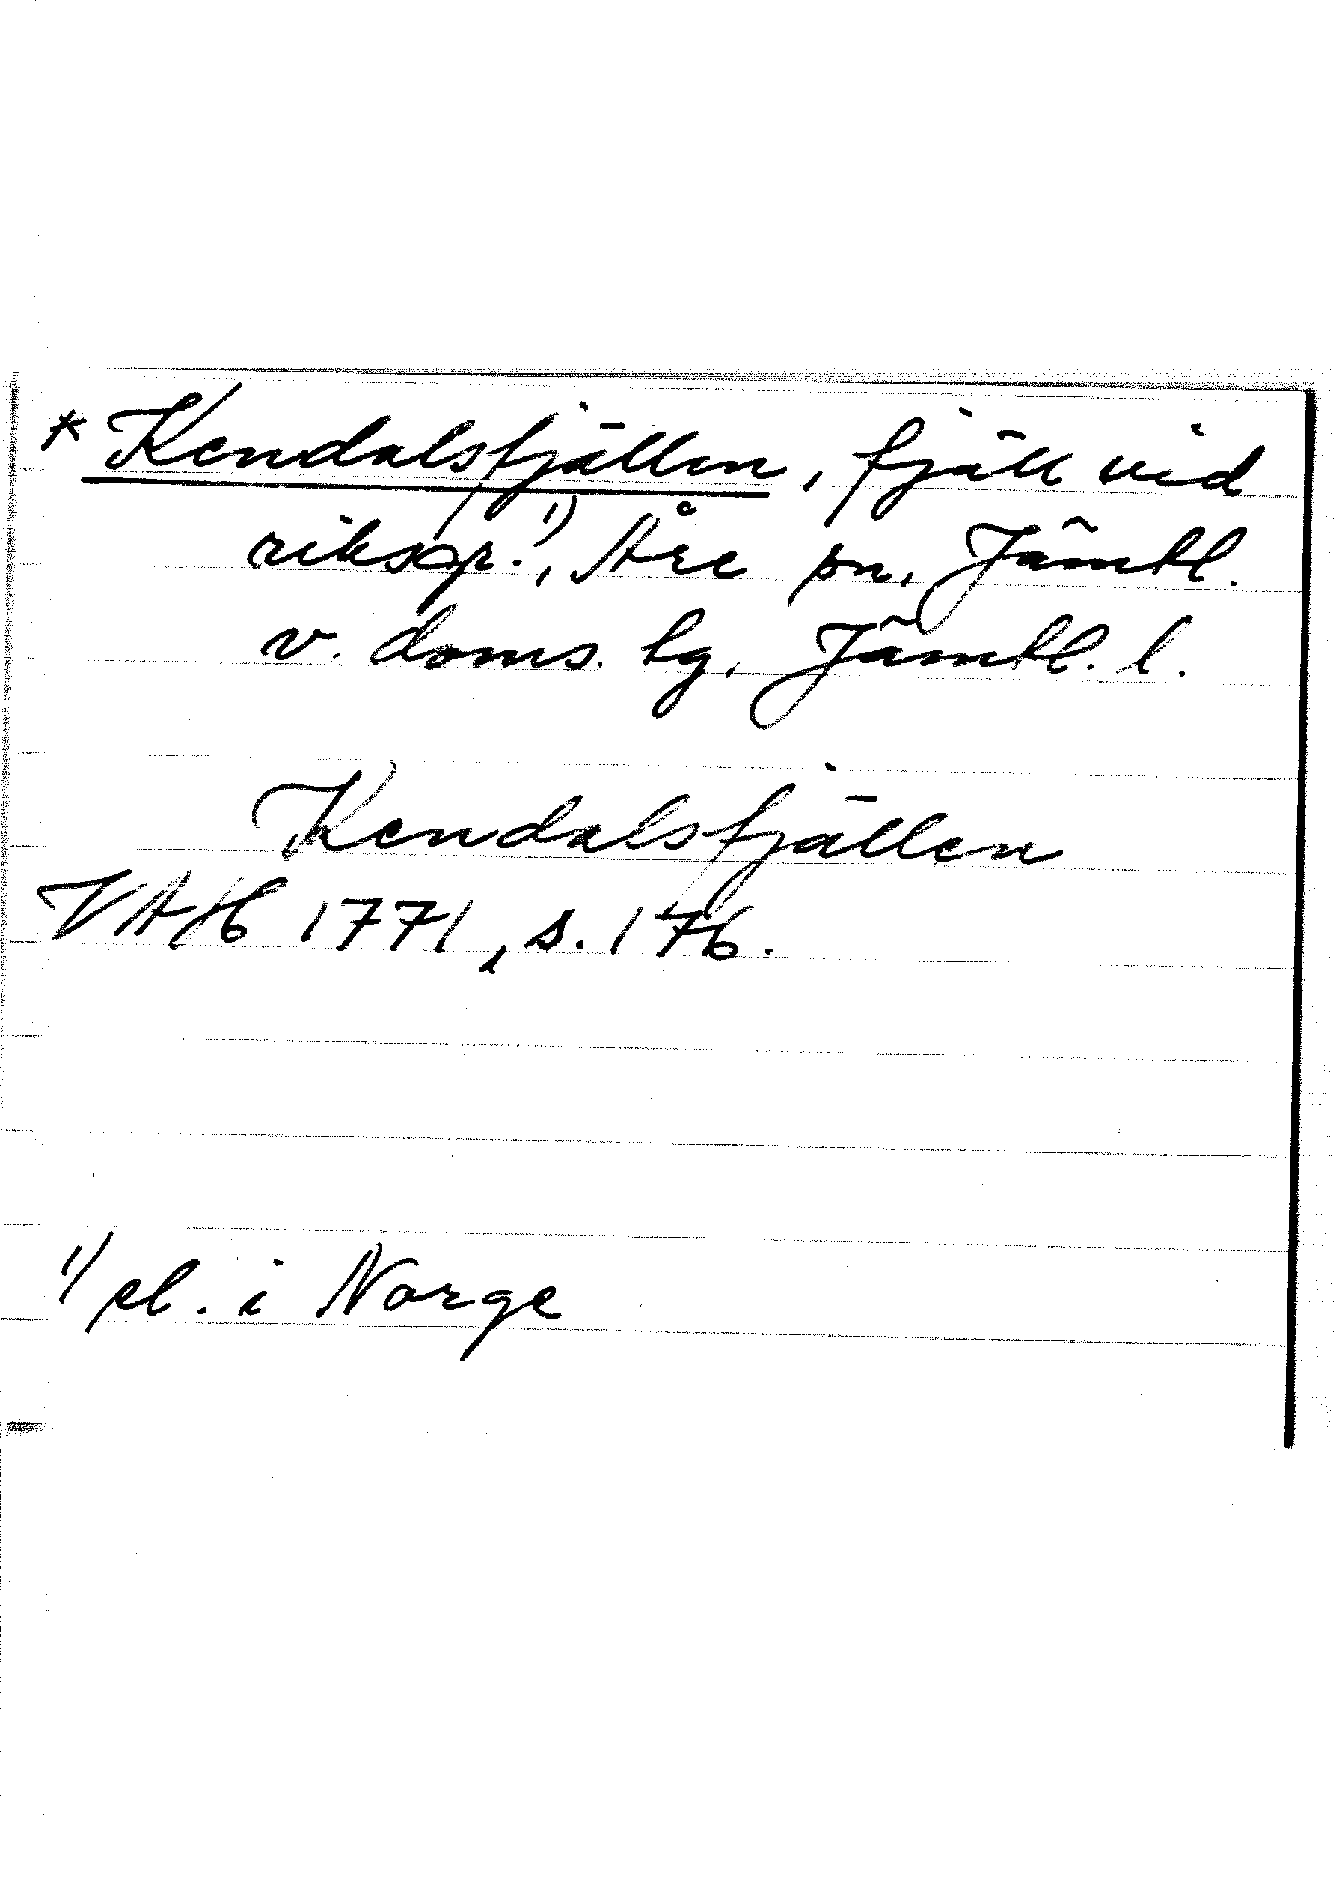 * Kendalsfjällen, fjäll vid
riksgr.¹⁾, Åre sn, Jämtl.
v. doms. hg, Jämtl. l.
Kendalsfjällen
VAH 1771, s. 176.
1) el. i Norge